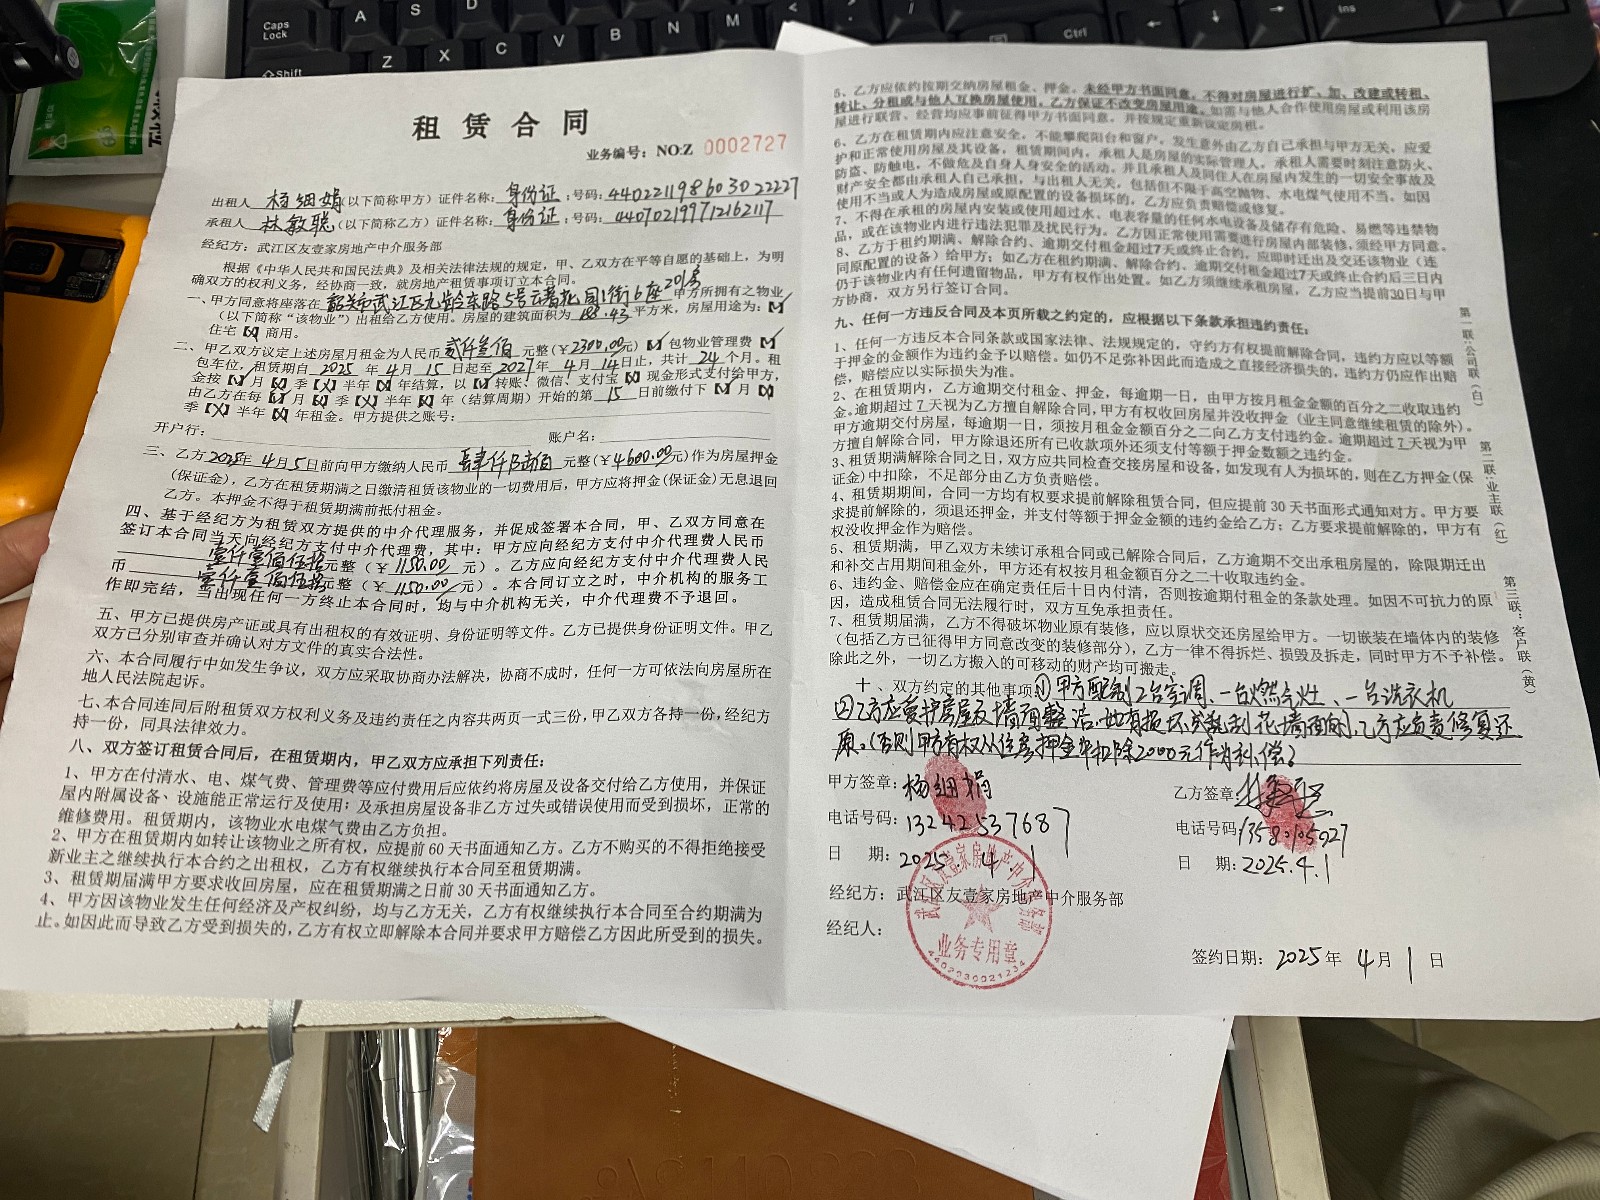 Caps Lock
A
S
D
F
G
H
Shift
Z
X
C
V
B
N
M
Ctrl
Ins
租赁合同
业务编号：NO:Z 0002727
出租人 杨细娟（以下简称甲方）证件名称：身份证：号码：440221198603022227
承租人 林敏聪（以下简称乙方）证件名称：身份证：号码：440702199712162117
经纪方：武江区友壹家房地产中介服务部
根据《中华人民共和国民法典》及相关法律法规的规定，甲、乙双方在平等自愿的基础上，为明
确双方的权利义务，经协商一致，就房地产租赁事项订立本合同。
一、甲方同意将座落在 韶关市武江区 东路5号 花园1街6座201房 甲方所拥有之物业
（以下简称“该物业”）出租给乙方使用。房屋的建筑面积为 .43 平方米，房屋用途为：【✓】
住宅【×】商用。
二、甲乙双方议定上述房屋月租金为人民币 贰仟叁佰 元整（￥2300.00元）【✓】包物业管理费【✓】
包车位，租赁期自 2025 年 4 月 15 日起至 2027 年 4 月 14 日止，共计 24 个月。租
金按【✓】月【×】季【×】半年【×】年结算，以【✓】转账、微信、支付宝【×】现金形式支付给甲方，
由乙方在每【✓】月【×】季【×】半年【×】年（结算周期）开始的第 15 日前缴付下【✓】月【×】
季【×】半年【×】年租金。甲方提供之账号：
开户行： 账户名：
三、乙方 2025年 4 月 5 日前向甲方缴纳人民币 肆仟陆佰 元整（￥4600.00元）作为房屋押金
（保证金），乙方在租赁期满之日缴清租赁该物业的一切费用后，甲方应将押金（保证金）无息退回
乙方。本押金不得于租赁期满前抵付租金。
四、基于经纪方为租赁双方提供的中介代理服务，并促成签署本合同，甲、乙双方同意在
签订本合同当天向经纪方支付中介代理费，其中：甲方应向经纪方支付中介代理费人民币
壹仟壹佰伍拾元整（￥1150.00 元）。乙方应向经纪方支付中介代理费人民
币 壹仟壹佰伍拾元整（￥1150.00 元）。本合同订立之时，中介机构的服务工
作即完结，当出现任何一方终止本合同时，均与中介机构无关，中介代理费不予退回。
五、甲方已提供房产证或具有出租权的有效证明、身份证明等文件。乙方已提供身份证明文件。甲乙
双方已分别审查并确认对方文件的真实合法性。
六、本合同履行中如发生争议，双方应采取协商办法解决，协商不成时，任何一方可依法向房屋所在
地人民法院起诉。
七、本合同连同后附租赁双方权利义务及违约责任之内容共两页一式三份，甲乙双方各持一份，经纪方
持一份，同具法律效力。
八、双方签订租赁合同后，在租赁期内，甲乙双方应承担下列责任：
1、甲方在付清水、电、煤气费、管理费等应付费用后应依约将房屋及设备交付给乙方使用，并保证
屋内附属设备、设施能正常运行及使用；及承担房屋设备非乙方过失或错误使用而受到损坏，正常的
维修费用。租赁期内，该物业水电煤气费由乙方负担。
2、甲方在租赁期内如转让该物业之所有权，应提前60天书面通知乙方。乙方不购买的不得拒绝接受
新业主之继续执行本合约之出租权，乙方有权继续执行本合同至租赁期满。
3、租赁期届满甲方要求收回房屋，应在租赁期满之日前30天书面通知乙方。
4、甲方因该物业发生任何经济及产权纠纷，均与乙方无关，乙方有权继续执行本合同至合约期满为
止。如因此而导致乙方受到损失的，乙方有权立即解除本合同并要求甲方赔偿乙方因此所受到的损失。
5、乙方应依约按期交纳房屋租金、押金。未经甲方书面同意，不得对房屋进行扩、加、改建或转租、
转让、分租或与他人互换房屋使用。乙方保证不改变房屋用途。如需与他人合作使用房屋或利用该房
屋进行联营、经营均应事前征得甲方书面同意，并按规定重新议定房租。
6、乙方在租赁期内应注意安全，不能攀爬阳台和窗户，发生意外由乙方自己承担与甲方无关，应爱
护和正常使用房屋及其设备，租赁期间内，承租人是房屋的实际管理人。承租人需要时刻注意防火、
防盗、防触电，不做危及自身人身安全的活动。并且承租人及同住人在房屋内发生的一切安全事故及
财产安全都由承租人自己承担，与出租人无关，包括但不限于高空抛物、水电煤气使用不当。如因
使用不当或人为造成房屋或原配置的设备损坏的，乙方应负责赔偿或修复。
7、不得在承租的房屋内安装或使用超过水、电表容量的任何水电设备及储存有危险、易燃等违禁物
品，或在该物业内进行违法犯罪及扰民行为。乙方因正常使用需要进行房屋内部装修，须经甲方同意。
8、乙方于租约期满、解除合约、逾期交付租金超过7天或终止合约，应即时迁出及交还该物业（连
同原配置的设备）给甲方；如乙方在租约期满、解除合约、逾期交付租金超过7天或终止合约后三日内
仍于该物业内有任何遗留物品，甲方有权作出处置。如乙方须继续承租房屋，乙方应当提前30日与甲
方协商，双方另行签订合同。
九、任何一方违反合同及本页所载之约定的，应根据以下条款承担违约责任：
1、任何一方违反本合同条款或国家法律、法规规定的，守约方有权提前解除合同，违约方应以等额
于押金的金额作为违约金予以赔偿。如仍不足弥补因此而造成之直接经济损失的，违约方仍应作出赔
偿，赔偿应以实际损失为准。
2、在租赁期内，乙方逾期交付租金、押金，每逾期一日，由甲方按月租金金额的百分之二收取违约
金。逾期超过7天视为乙方擅自解除合同，甲方有权收回房屋并没收押金（业主同意继续租赁的除外）。
甲方逾期交付房屋，每逾期一日，须按月租金金额百分之二向乙方支付违约金。逾期超过7天视为甲
方擅自解除合同，甲方除退还所有已收款项外还须支付等额于押金数额之违约金。
3、租赁期满解除合同之日，双方应共同检查交接房屋和设备，如发现有人为损坏的，则在乙方押金（保
证金）中扣除，不足部分由乙方负责赔偿。
4、租赁期期间，合同一方均有权要求提前解除租赁合同，但应提前30天书面形式通知对方。甲方要
求提前解除的，须退还押金，并支付等额于押金金额的违约金给乙方；乙方要求提前解除的，甲方有
权没收押金作为赔偿。
5、租赁期满，甲乙双方未续订承租合同或已解除合同后，乙方逾期不交出承租房屋的，除限期迁出
和补交占用期间租金外，甲方还有权按月租金额百分之二十收取违约金。
6、违约金、赔偿金应在确定责任后十日内付清，否则按逾期付租金的条款处理。如因不可抗力的原
因，造成租赁合同无法履行时，双方互免承担责任。
7、租赁期届满，乙方不得破坏物业原有装修，应以原状交还房屋给甲方。一切嵌装在墙体内的装修
（包括乙方已征得甲方同意改变的装修部分），乙方一律不得拆烂、损毁及拆走，同时甲方不予补偿。
除此之外，一切乙方搬入的可移动的财产均可搬走。
十、双方约定的其他事项：①甲方配制2台空调、一台燃气灶、一台洗衣机
②乙方应爱护房屋及墙面整洁，如有损坏或乱刮花墙面的，乙方应负责修复还
原。（否则甲方有权从住房押金中扣除2000元作为补偿）
甲方签章：杨细娟
电话号码：13242537687
日 期：2025. 4. 1
乙方签章：
电话号码：13580105927
日 期：2025.4.1
经纪方：武江区友壹家房地产中介服务部
经纪人：
武江区友壹家房地产中介服务部
业务专用章
4402030021234
签约日期：2025 年 4 月 1 日
第一联：公司联（白）
第二联：业主联（红）
第三联：客户联（黄）